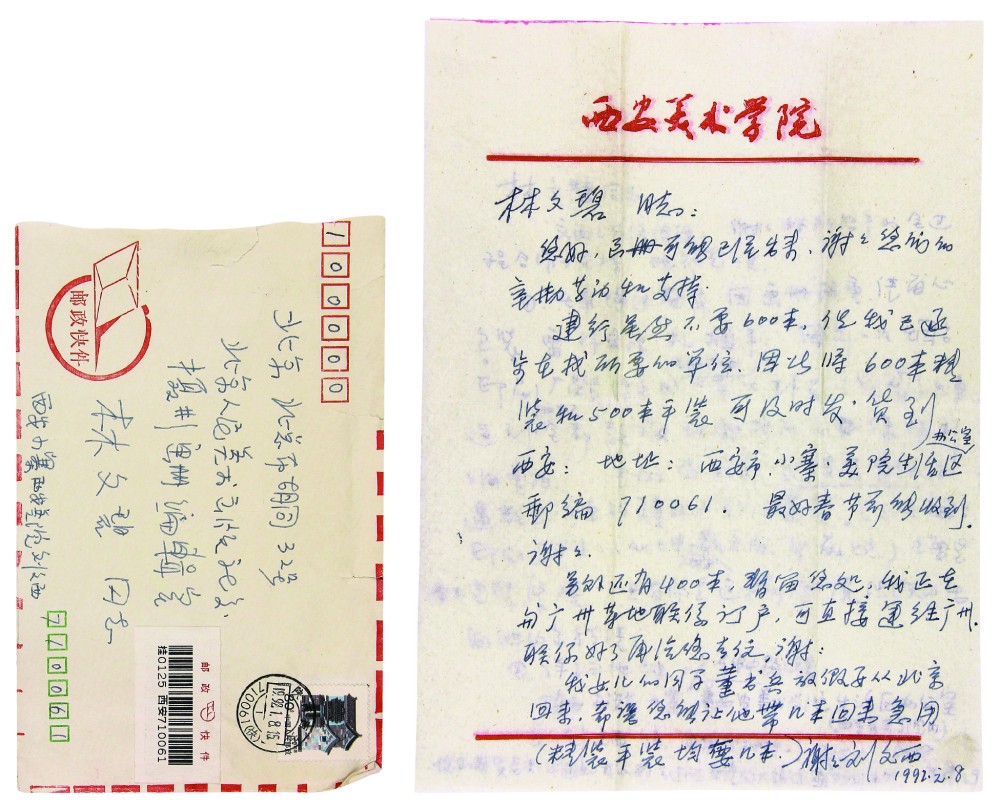 100000
邮政快件
北京 北总布胡同32号
北京人民美术出版社
摄影画册编辑室
林文碧 同志
西安小寨西安美院刘文西
710061
邮政快件
挂0125 西安710061
1992.1.8.18
710061
西安美术学院
林文碧 同志:
您好,画册可能已是出来,谢谢您们的
辛勤劳动和支持.
建行虽然不要600本,但我已逐
步在找所要的单位.因此将600本精
装和500本平装可及时发货到
办公室
西安:地址:西安市.小寨.美院生活区
邮编710061.最好春节前能收到.
谢谢.
另外还有400本,暂留您处,我正在
与广州等地联系订户,可直接运往广州.
联系好了再给您去信,谢谢:
我女儿的同学董书兵放假要从北京
回来,希望您能让他带几本回来急用
(精装平装均要几本.)谢谢刘文西
1992.元.8